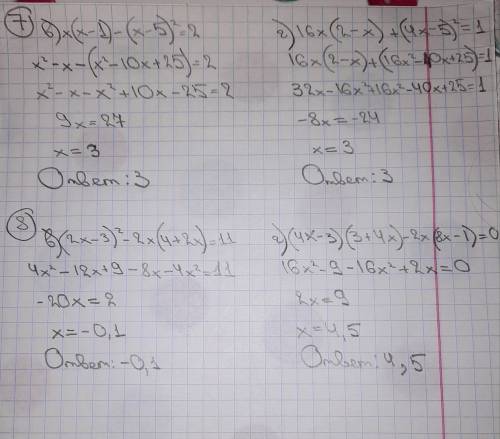 7) в) x(x-1)-(x-5)²=2
x²-x-(x²-10x+25)=2
x²-x-x²+10x-25=2
9x=27
x=3
Ответ: 3
г) 16x(2-x)+(4x-5)²=1
16x(2-x)+(16x²-40x+25)=1
32x-16x²+16x²-40x+25=1
-8x=-24
x=3
Ответ: 3
8) в) (2x-3)²-2x(4+2x)=11
4x²-12x+9-8x-4x²=11
-20x=2
x=-0,1
Ответ: -0,1
г) (4x-3)(3+4x)-2x(8x-1)=0
16x²-9-16x²+2x=0
2x=9
x=4,5
Ответ: 4,5